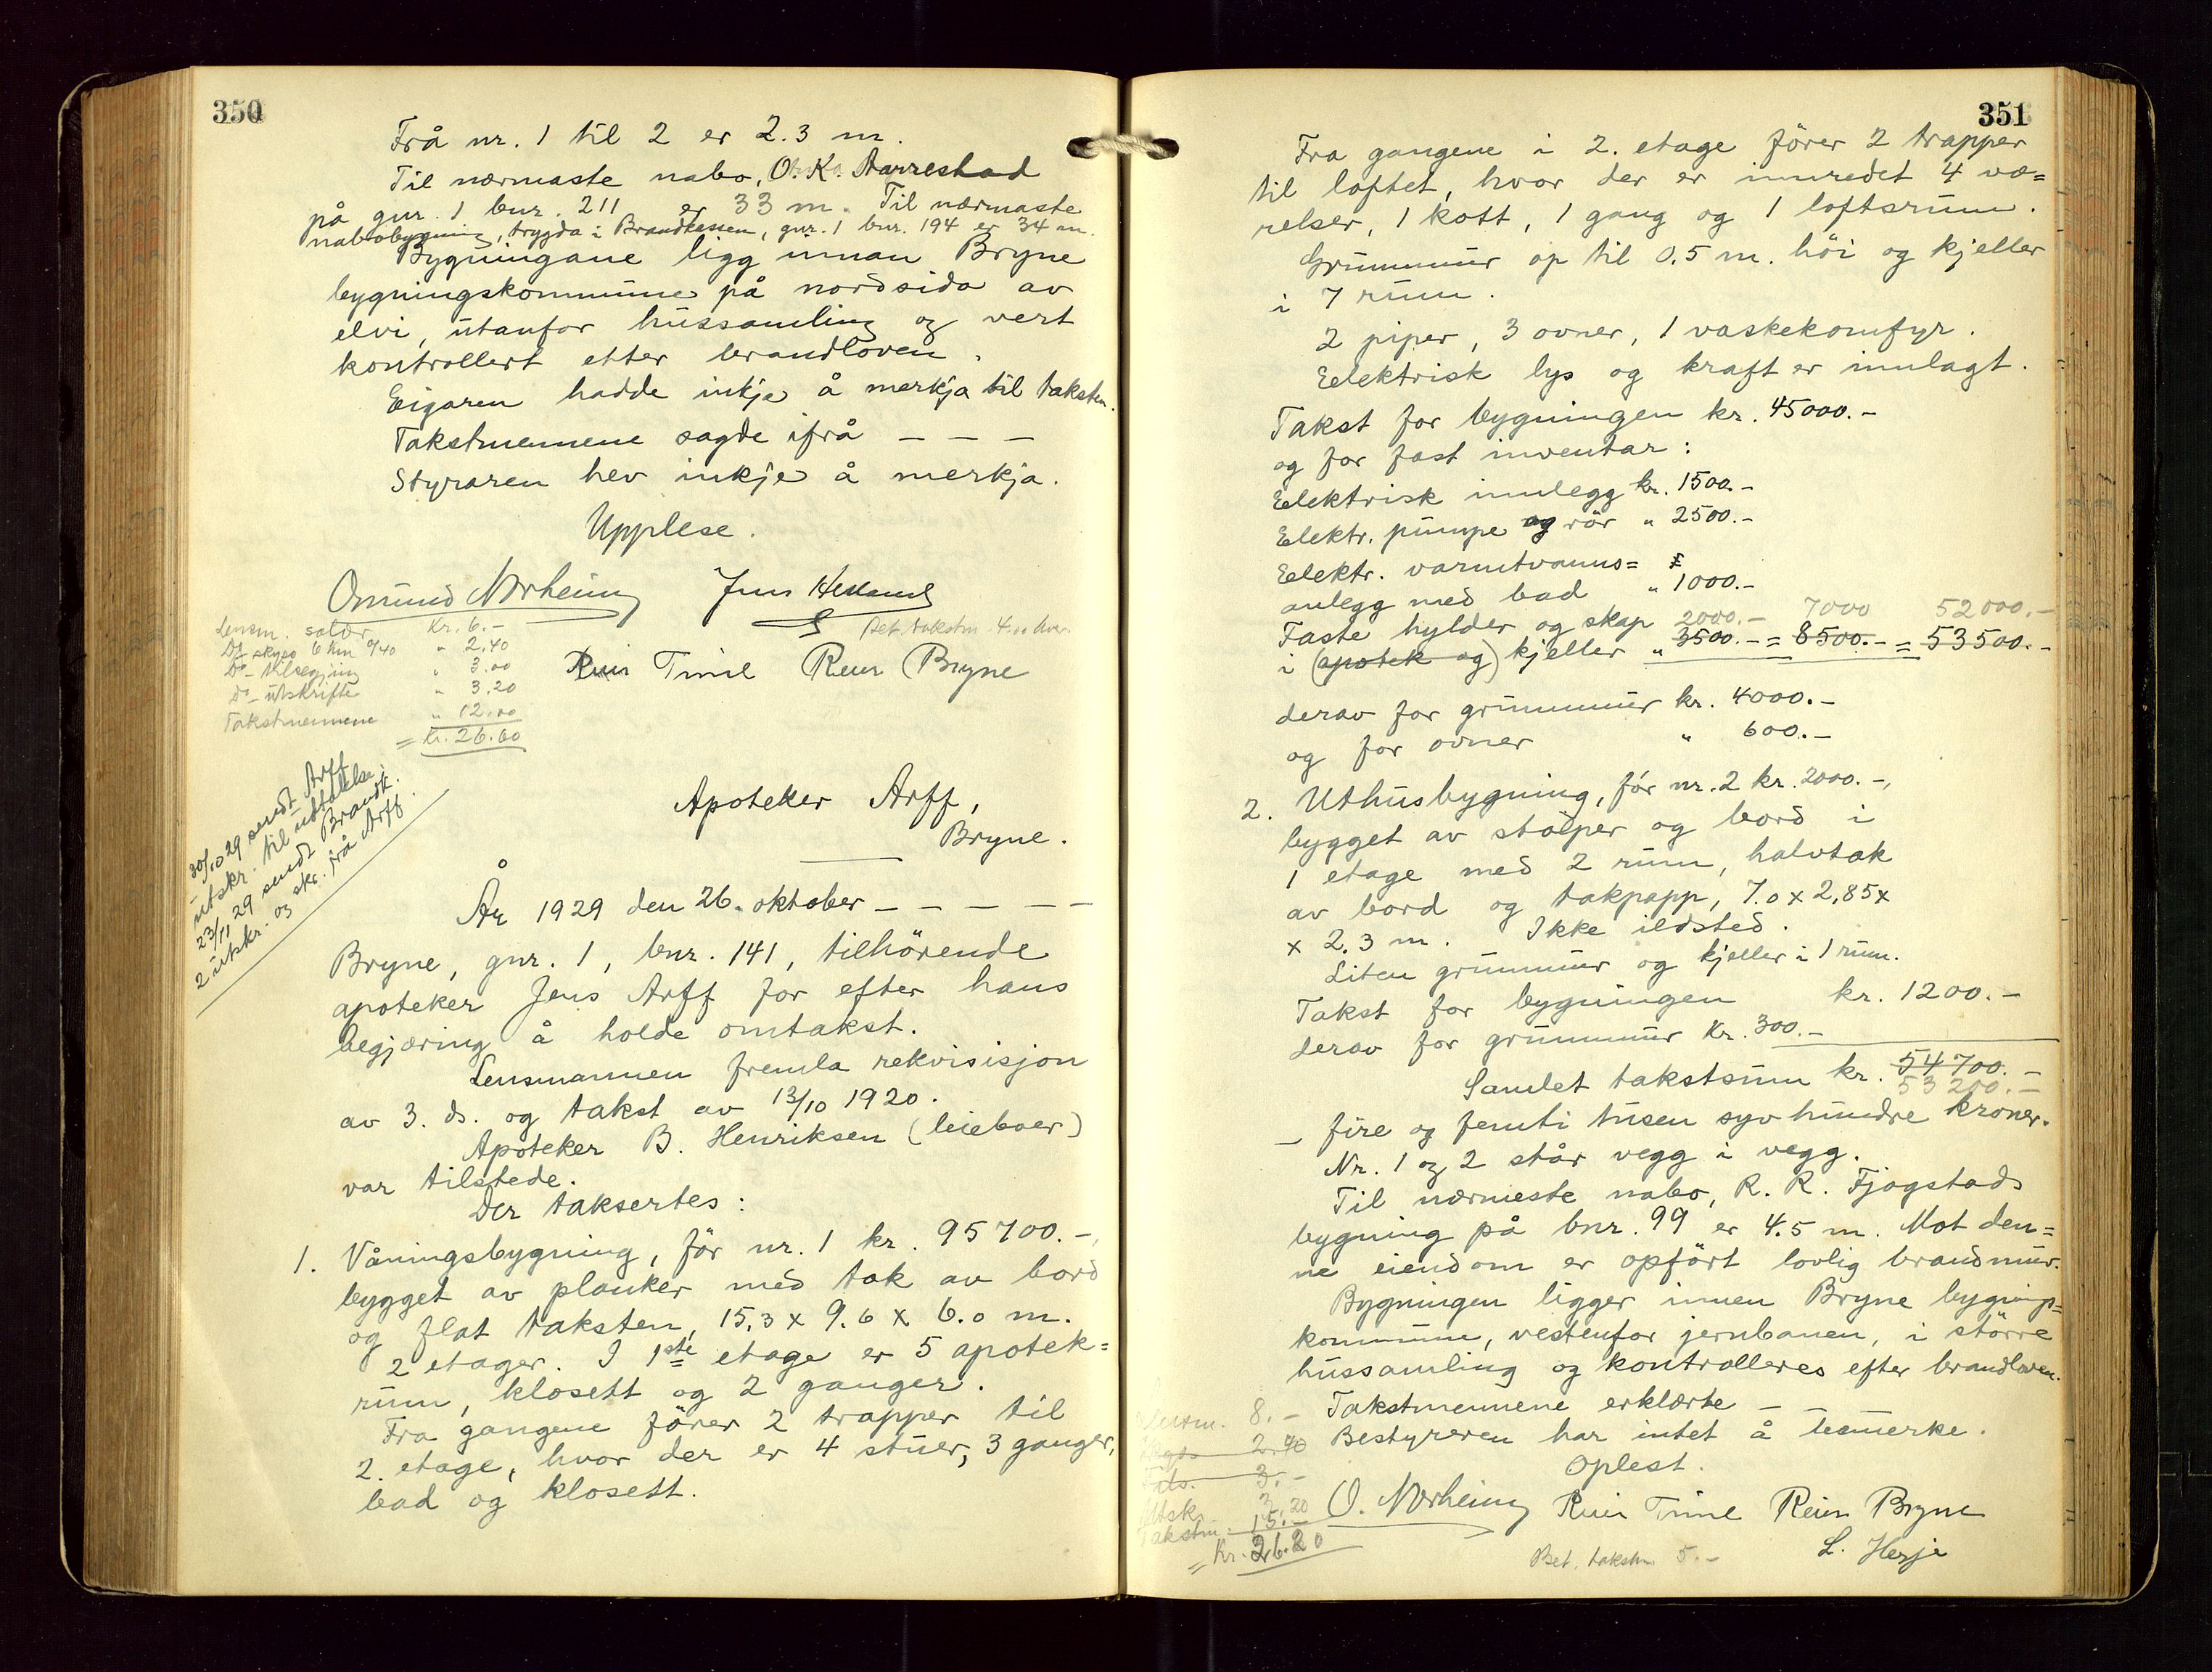 350
Frå nr. 1 til 2 er 2.3 m.
Til nærmaste nabo, O. K. Aarrestad
på gnr. 1 bnr. 211 er 33 m. Til nærmaste
nabobygning, trygda i Brandkassen, gnr. 1 bnr. 194 er 34 m.
Bygningane ligg innan Bryne
bygningskommune på nordsida av
elvi, utanfor hussamling og vert
kontrollert etter brandloven.
Eigaren hadde inkje å merkja til taksten.
Takstmennene sagde ifrå – – –
Styraren hev inkje å merkja.
Upplese.
Omund Norheim Jens Helland
Bet. takstm. 4.00 kvar.
Reier Tinil Reier Bryne
Lensm. salær Kr. 6.–
Do skyss 6 km º/40 " 2.40
Do tilsegjing " 3.00
Do utskrifte " 3.20
Takstmennene " 12.00
= Kr. 26.60
30/10 29 sendt Arff
utskr. til uttalelse.
23/11 29 sendt Brandk.
2 utskr. og skr. frå Arff.
Apoteker Arff,
Bryne.
År 1929 den 26. oktober – – – – –
Bryne, gnr. 1, bnr. 141, tilhörende
apoteker Jens Arff for efter hans
begjæring å holde omtakst.
Lensmannen fremla rekvisisjon
av 3. ds. og takst av 13/10 1920.
Apoteker B. Henriksen (leieboer)
var tilstede.
Der taksertes:
1. Våningsbygning, för nr. 1 kr. 95700.–,
bygget av planker med tak av bord
og flat taksten, 15.3 x 9.6 x 6.0 m.
2 etager. I 1ste etage er 5 apotek=
rum, klosett og 2 ganger.
Fra gangene förer 2 trapper til
2. etage, hvor der er 4 stuer, 3 ganger,
bad og klosett.
351
Fra gangene i 2. etage förer 2 trapper
til loftet, hvor der er innredet 4 væ=
relser, 1 kott, 1 gang og 1 loftsrum.
Grunnmur op til 0.5 m. höi og kjeller
i 7 rum.
2 piper, 3 ovner, 1 vaskekomfyr.
Eelektrisk lys og kraft er innlagt.
Takst for bygningen kr. 45000.–
og for fast inventar:
Eelektrisk innlegg kr. 1500.–
Eelektr. pumpe og rör " 2500.–
Eelektr. varmtvanns=
anlegg med bad " 1000.–
Faste hylder og skap 2000.– 7000 52000.–
i (apotek og) kjeller " 3500.– = 8500.– = 53500.–
derav for grunnmur kr. 4000.–
og for ovner " 600.–
2. Uthusbygning, för nr. 2 kr. 2000.–,
bygget av stolper og bord i
1 etage med 2 rum, halvtak
av bord og takpapp, 7.0 x 2,85 x
x 2.3 m. Ikke ildsted.
Liten grunnmur og kjeller i 1 rum.
Takst for bygningen kr. 1200.–
derav for grunnmur Kr. 300.–
Samlet takstsum kr. 54700.–
53200.–
– fire og femti tusen syv hundre kroner.
Nr. 1 og 2 står vegg i vegg.
Til nærmeste nabo, R. R. Fjogstads
bygning på bnr. 99 er 4.5 m. Mot den=
ne eiendom er opfört lovlig brandmur.
Bygningen ligger innen Bryne bygnings=
kommune, vestenfor jernbanen, i större
hussamling og kontrolleres efter brandloven.
Takstmennene erklærte – –
Bestyreren har intet å bemerke.
Oplest.
O. Norheim Reier Tinil Reier Bryne
L. Herje
Bet. takstm. 5.–
Lensm. 8.–
2.40
Tils. 3.–
Utskr. 3.20
Takstm. 15.–
= Kr. 26.20